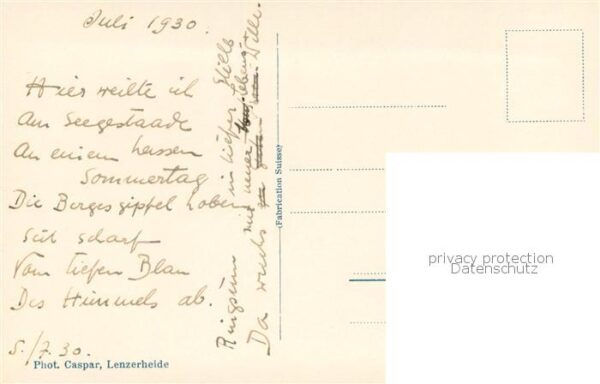 Juli 1930.
Hier weilte ich
Am Seegestaade
An einem heissen
Sommertag
Die Bergesgipfel hoben
sich scharf
Vom tiefen Blau
Des Himmels ab.
5./7.30.
Ringsum in tiefer Stille
Da wuchs mir neuer Lebens-
Wille.
Phot. Caspar, Lenzerheide
(Fabrication Suisse)
privacy protection
Datenschutz